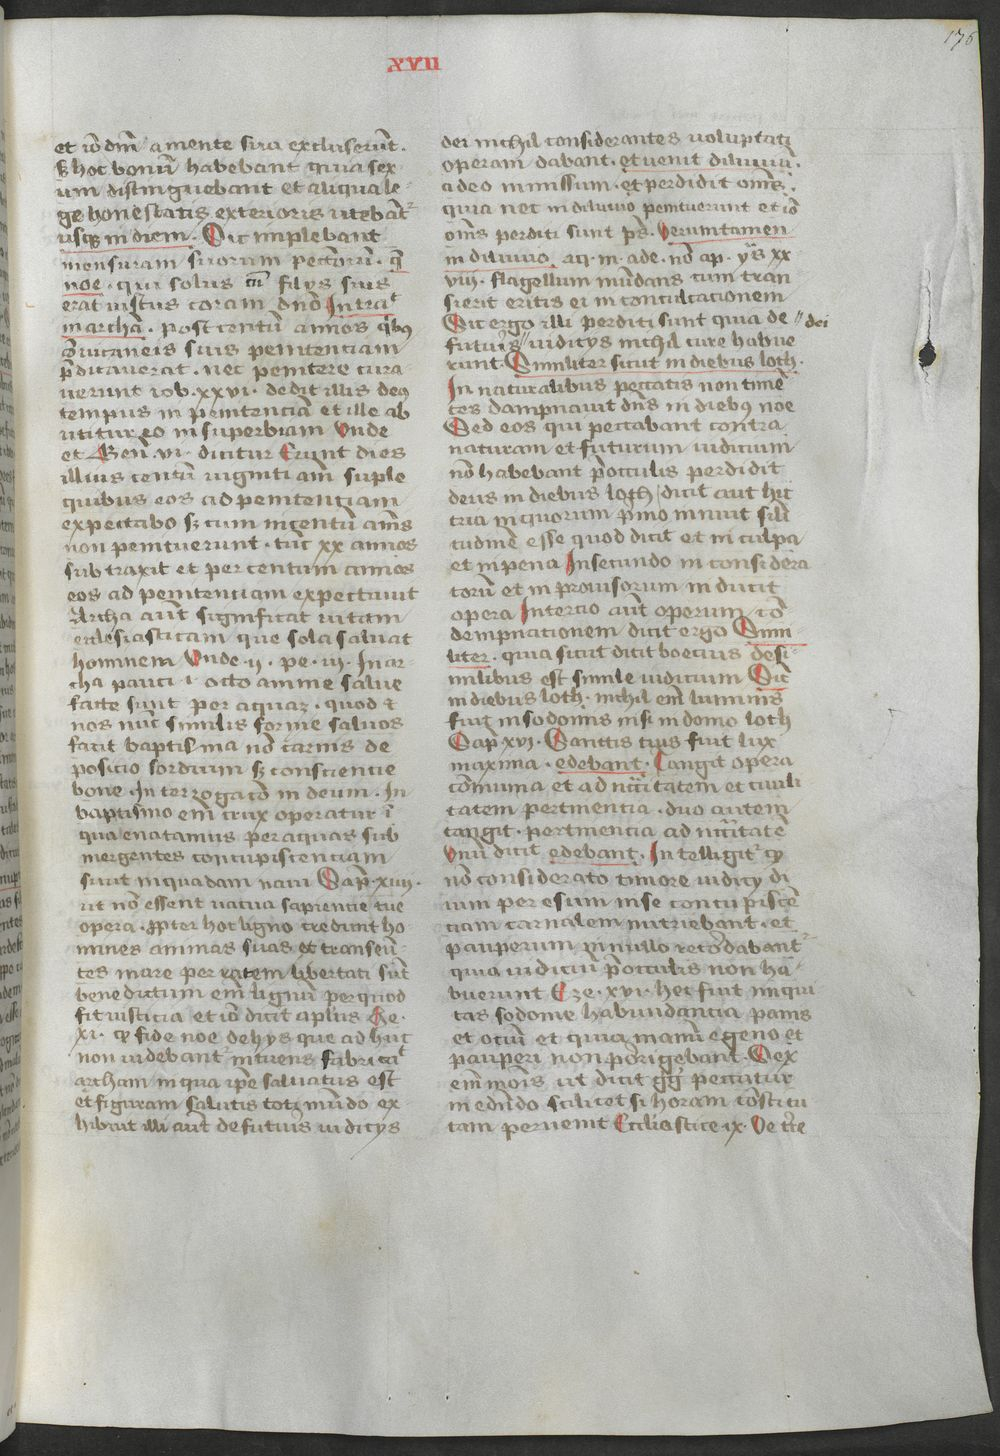 176
XVII
et iō dm̄ a mente sua excluserūt.
Ꝫ hoc bonū habebant quia sex
um distinguebant et aliqua le
ge honestatis exterioris utebāt᷑
usqꝫ in diem. Sic implebant
mensuram suorum peccatorū. q̄
noe. qui solus cū filijs suis
erat iustus coram dn̄o Intrat᷑
in archā. post centū annos qͥbꝰ
conuicaneis suis penitenciam
p̄dicauerat. nec penitere cura
uerunt iob. xxvi. dedit illis deꝰ
tempus in penitenciā et ille ab
utitur eo in superbiam Unde
et Gen̄. vi. dicitur Erunt dies
illius centū uiginti ann̄ suple
quibus eos ad penitenciam
expectabo sꝫ cum in centū annis
non penituerunt. tūc xx annos
subtraxit et per centum annos
eos ad penitenciam expectauit
Archa aut̄ significat uitam
ecclesiasticam que sola saluat
hominem Unde. ii. pe. iii. In ar
cha pauci .i. octo anime salue
facte sunt per aquaꝫ. quod et
nos nūc similis forme saluos
facit baptisma nō carnis de
posicio sordium sꝫ consciencie
bone. Interrogacō in deum. In
baptismo em̄ crux operatur ī
qua enatamus per aquas sub
mergentes concupiscenciam
sicut in quadam naui Sap̄. xiiii.
ut nō essent uacua sapiencie tue
opera. ꝓpter hoc ligno credunt ho
mines animas suas et transeū
tes mare per ratem libertati sūt
benedictum em̄ lignū per quod
fit iusticia et iō dicit aplūs He.
xi. ꝙ fide noe de hijs que ad huc
non uidebant᷑ metuens fabricat᷑
archam in qua ip̄e saluatus est
et figuram salutis toti mūdo ex
hibuit illi aut̄ de futuris iudicijs
dei nichil considerantes uoluptati
operam dabant. et uenit diluuiū.
a deo inmissum. et perdidit om̄s.
quia nec in diluuio penituerunt et iō
om̄s perditi sunt p̄s. Uerumtamen
in diluuio aq. m. ade. nō ap. ys̄ xx
viii. flagellum inūdans cum tran
sierit eritis ei in conculcacionem
Sic ergo illi perditi sunt quia de // dei
futuris // iudicijs nichil cure habue
runt. Similiter sicut in diebus loth.
In naturalibus peccatis non timē
tes dampnauit dn̄s in diebꝰ noe
Sed eos qui peccabant contra
naturam et futurum iudicium
nō habebant p̄ occulis perdidit
deus in diebus loth / dicit aut̄ hic
tria in quorum p̄mo innuit sili
tudinē esse quod dicit et in culpa
et in pena In secundo in considera
torū et in prouisorum inducit
opera In tercio aut̄ operum cō
dempnationem dicit ergo Simi
liter. quia sicut dicit boecius de si
milibus est simile iudicium Sic̄
in diebus loth. nichil em̄ luminis
fuit in sodomis nisi in domo loth
Sap̄ xvi. Sanctis tuis fuit lux
maxima. edebant. Tangit opera
cōmunia et ad nccītatem et ciuili
tatem pertinencia. duo autem
tangit. pertinencia ad nccītatē
Unū dicit edebant. Intelligit᷑ ꝙ
nō considerato timore iudicij di
uini per esum in se concupiscē
ciam carnalem nutriebant. et
pauperum in nullo recordabant᷑
quia iudiciū p̄ occulis non ha
buerunt Eze. xvi. hec fuit iniqui
tas sodome habundancia panis
et ociū et quia manū egeno et
pauperi non porigebant. Sex
em̄ mōis ut dicit gg̓ peccatur
in edendo scilicet si horam cōstitu
tam peruenit Ecclīastice ix. Ue tr̄e